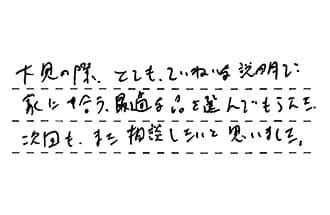 下見の際、とても、ていねいな説明で
家に合う、最適な品を選んでもらえた。
次回も、また相談したいと思いました。